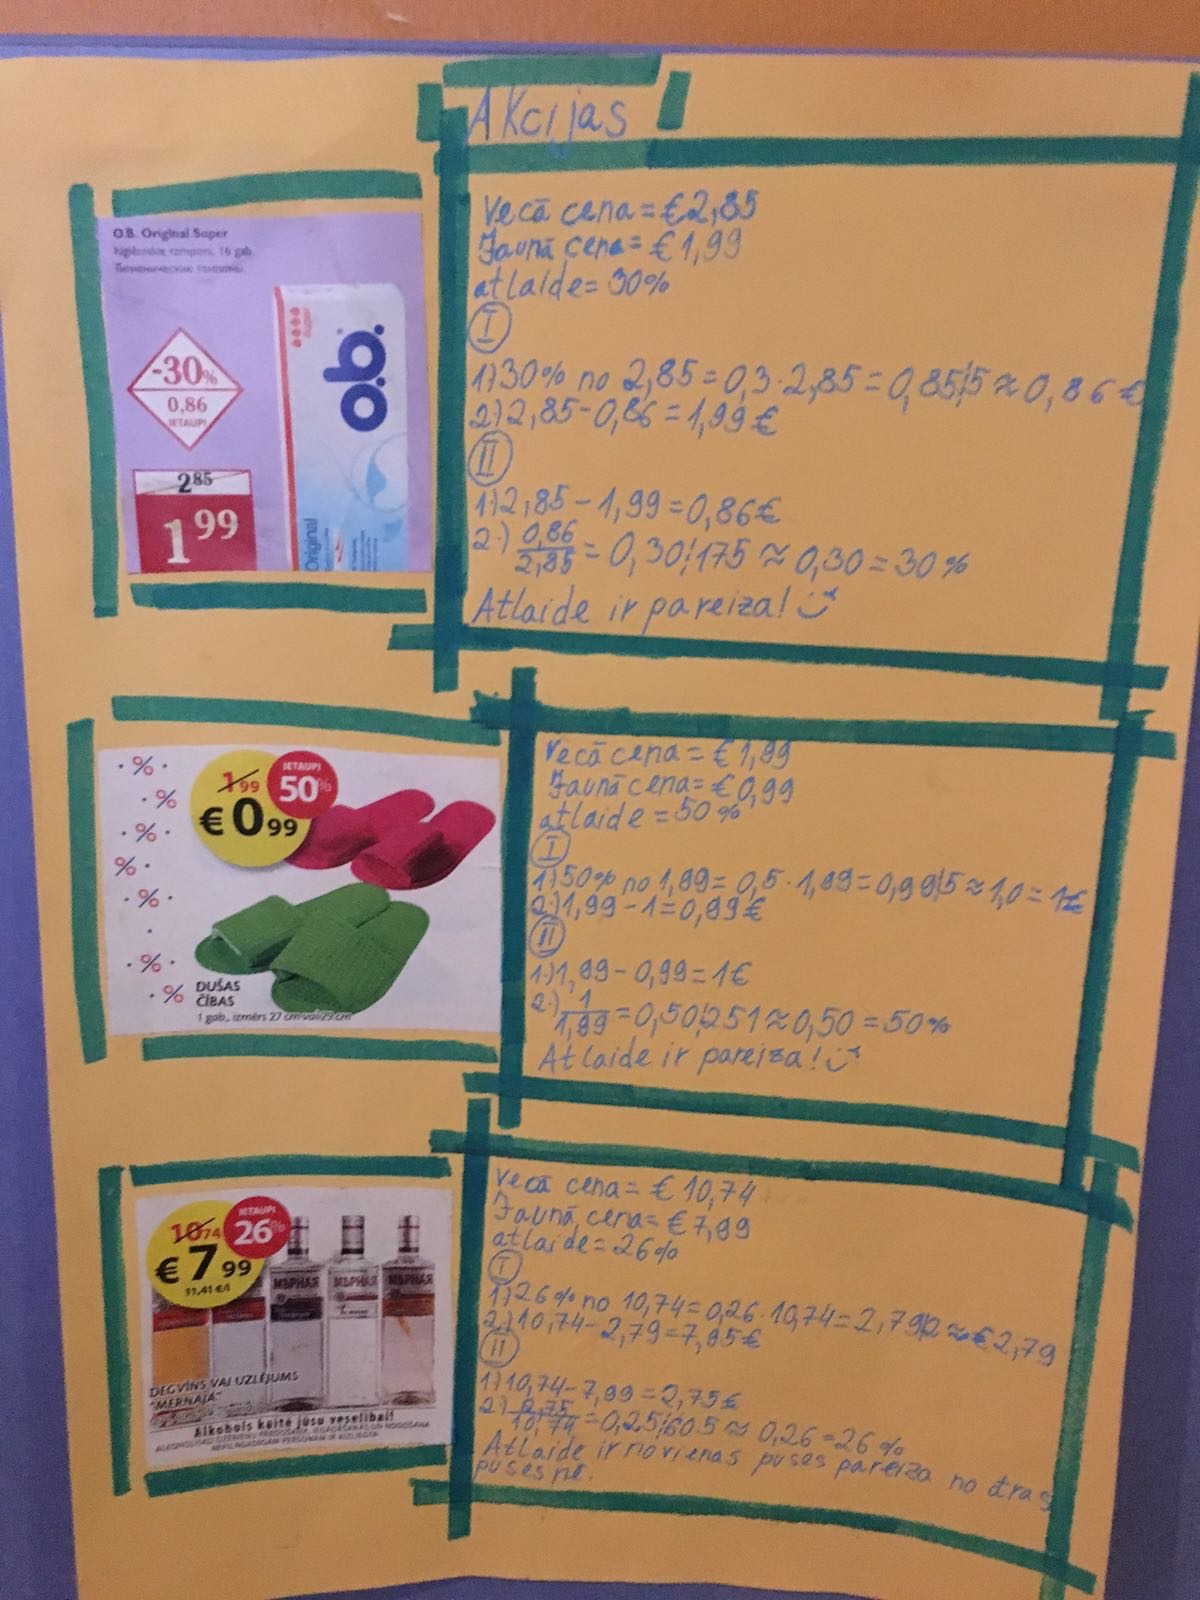 Akcijas
O.B. Original Super
higiēniskie tamponi, 16 gab.
Гигиенические тампоны
-30%
0,86
IETAUPI
2 85
1 99
super
o.b.
Original
Vecā cena = €2,85
Jaunā cena = €1,99
atlaide = 30%
I
1.) 30% no 2,85 = 0,3 · 2,85 = 0,85|5 ≈ 0,86 €
2.) 2,85 - 0,86 = 1,99 €
II
1.) 2,85 - 1,99 = 0,86 €
2.) 0,86/2,85 = 0,30|175 ≈ 0,30 = 30%
Atlaide ir pareiza!
IETAUPI
50%
1 99
€ 0 99
DUŠAS
ČĪBAS
1 gab., izmērs 27 cm vai 29 cm
Vecā cena = €1,99
Jaunā cena = €0,99
atlaide = 50%
I
1.) 50% no 1,99 = 0,5 · 1,99 = 0,99|5 ≈ 1,0 = 1€
2.) 1,99 - 1 = 0,99 €
II
1.) 1,99 - 0,99 = 1€
2.) 1/1,99 = 0,50|251 ≈ 0,50 = 50%
Atlaide ir pareiza!
IETAUPI
26%
10 74
€ 7 99
11,41 €/l
МѢРНАЯ МѢРНАЯ МѢРНАЯ
DEGVĪNS VAI UZLĒJUMS
"MERNAJA"
Alkohols kaitē jūsu veselībai!
ALKOHOLISKO DZĒRIENU PĀRDOŠANA, IEGĀDĀŠANĀS UN NODOŠANA
NEPILNGADĪGĀM PERSONĀM IR AIZLIEGTA
Vecā cena = €10,74
Jaunā cena = €7,99
atlaide = 26%
I
1.) 26% no 10,74 = 0,26 · 10,74 = 2,79|2 ≈ €2,79
2.) 10,74 - 2,79 = 7,95€
II
1.) 10,74 - 7,99 = 2,75€
2.) 2,75/10,74 = 0,25|605 ≈ 0,26 = 26%
Atlaide ir no vienas puses pareiza no otras
puses nē.